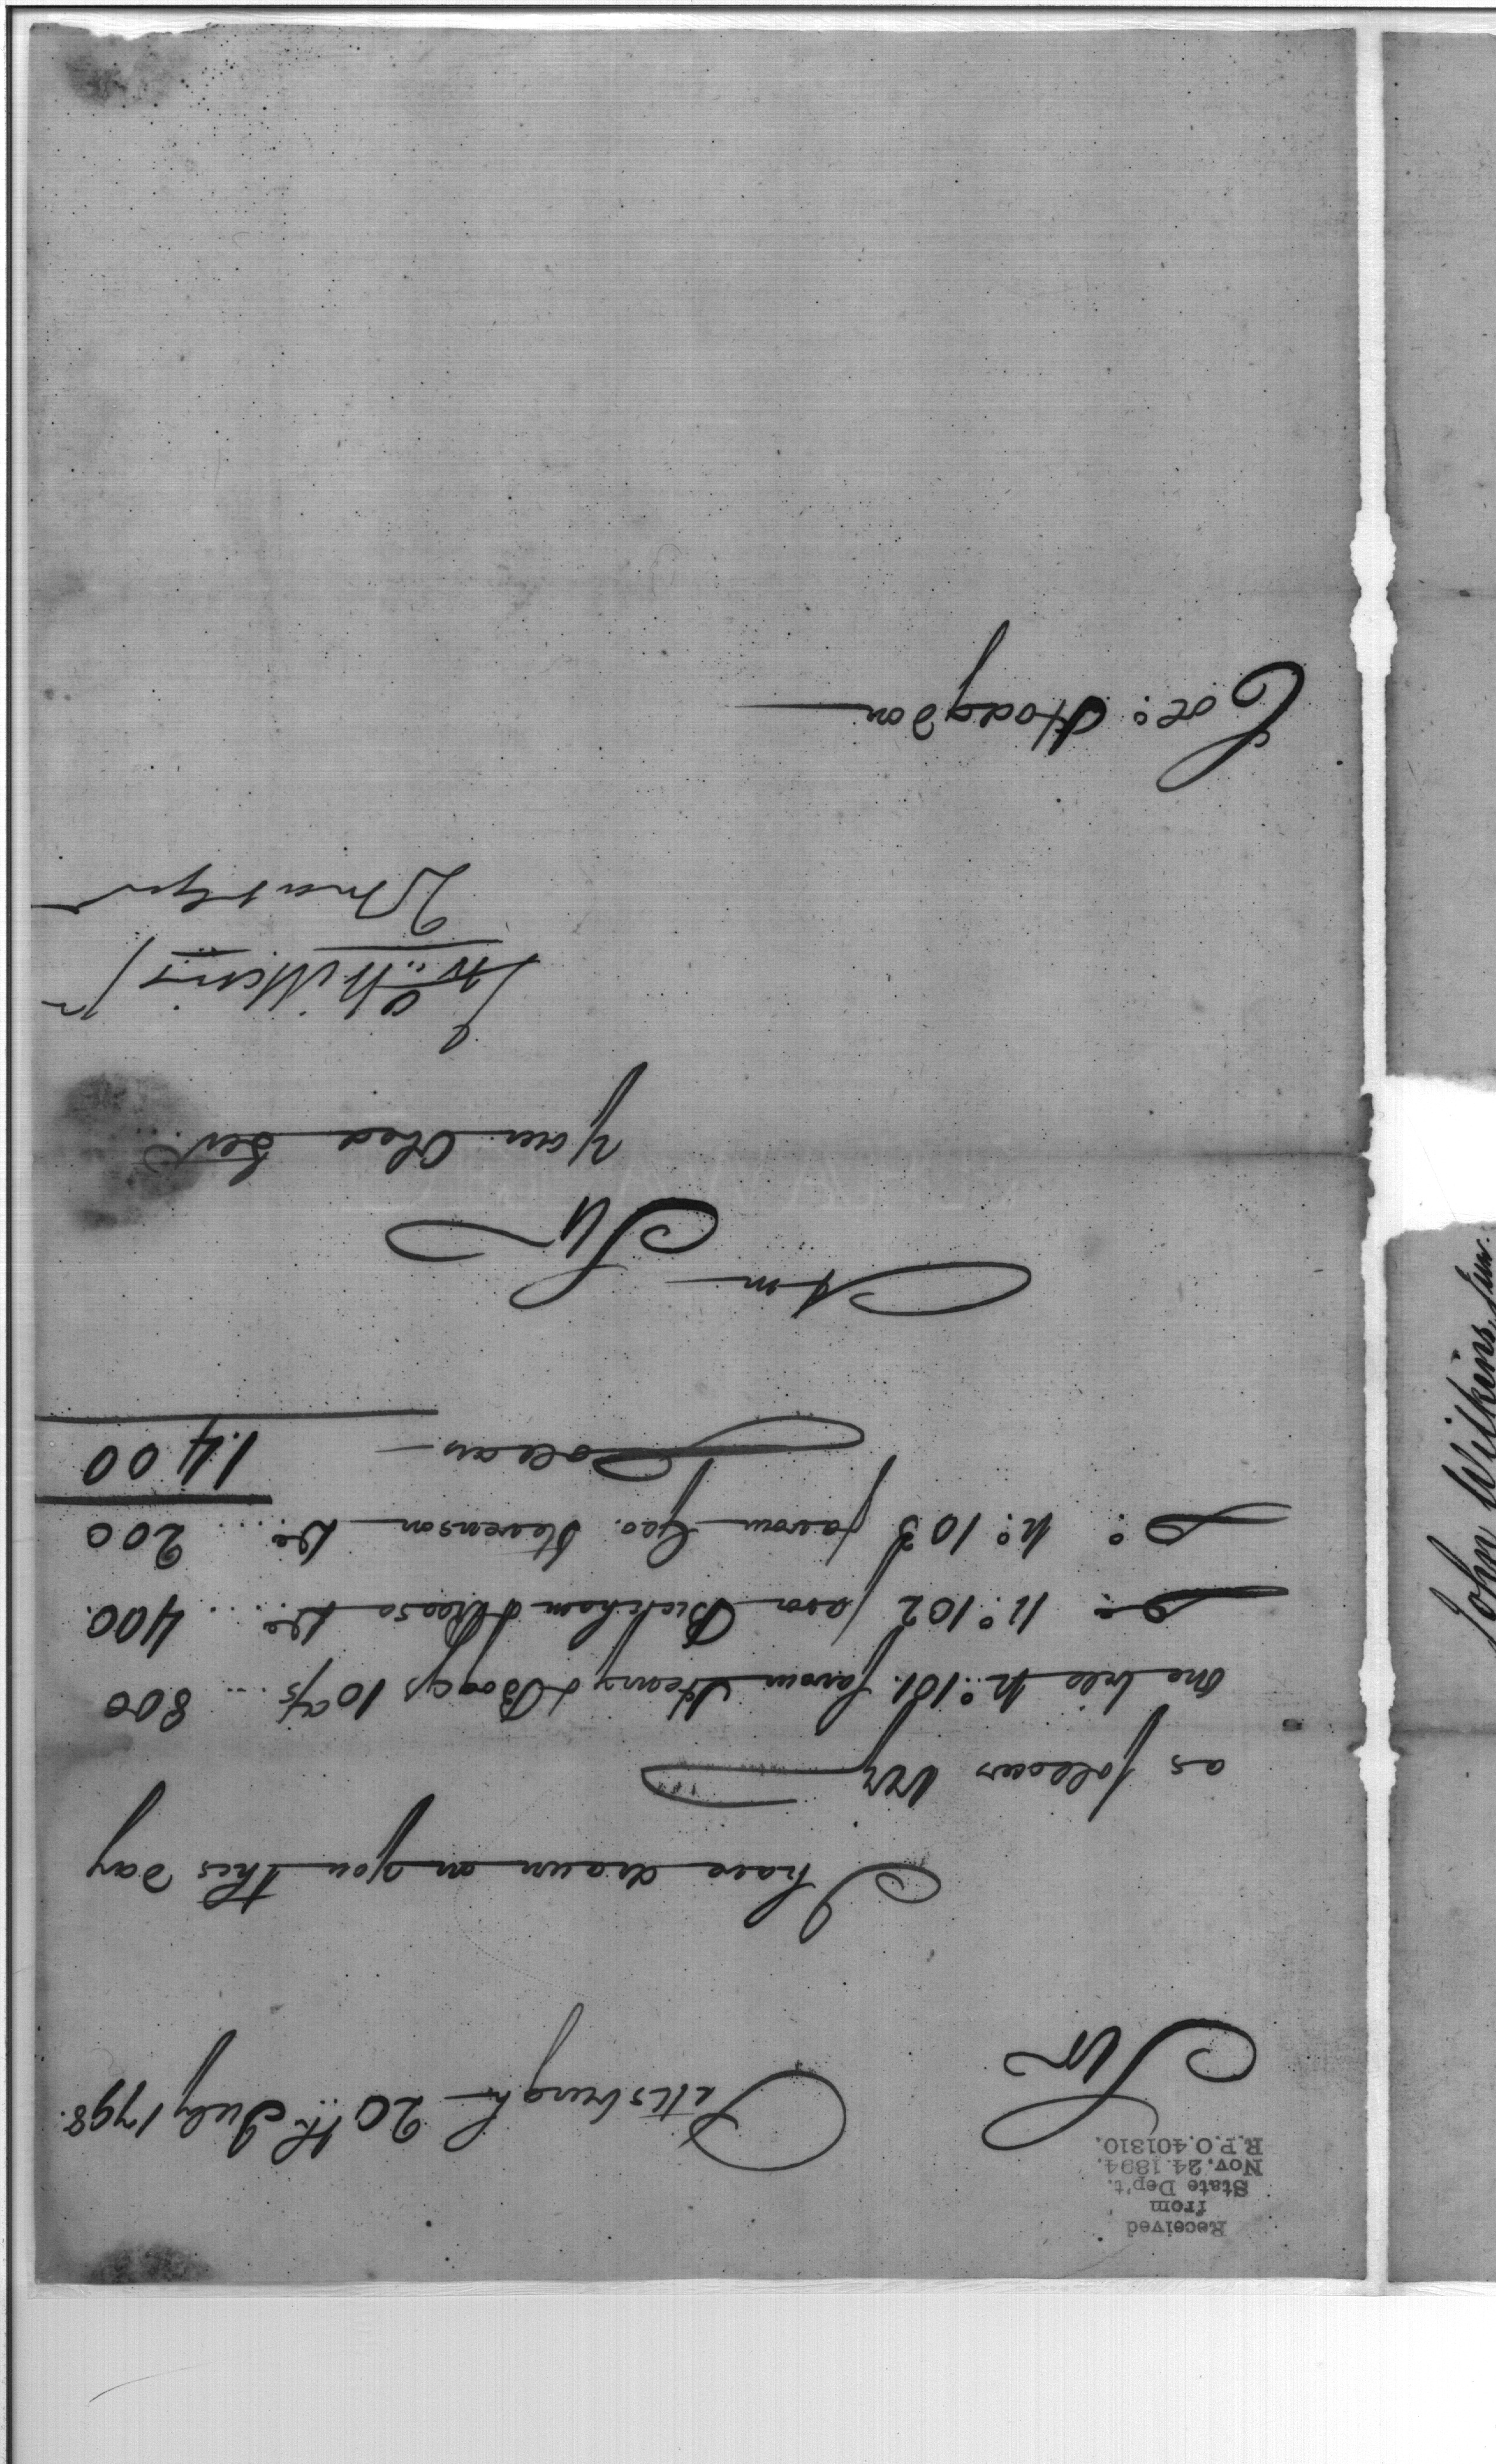 Received
from
State Dep't.
Nov. 24. 1894.
R.P.O. 401310.
Pittsburgh 20th July 1798.
Sir
I have drawn on you this day
as follows Viz
One bill No. 101 favour Henry & Boggs 10 d/s ... 800
Do. No. 102 favor Bickham & Reese Do. .... 400.
Do. No. 103 favour Geo. Stevenson Do. .... 200
Dollars 1400
Am
Sir
Your Obed Servt.
Jno. Wilkins Jr
Qr Mast Genl
Colo. Hodgdon
John Wilkins, Jun.